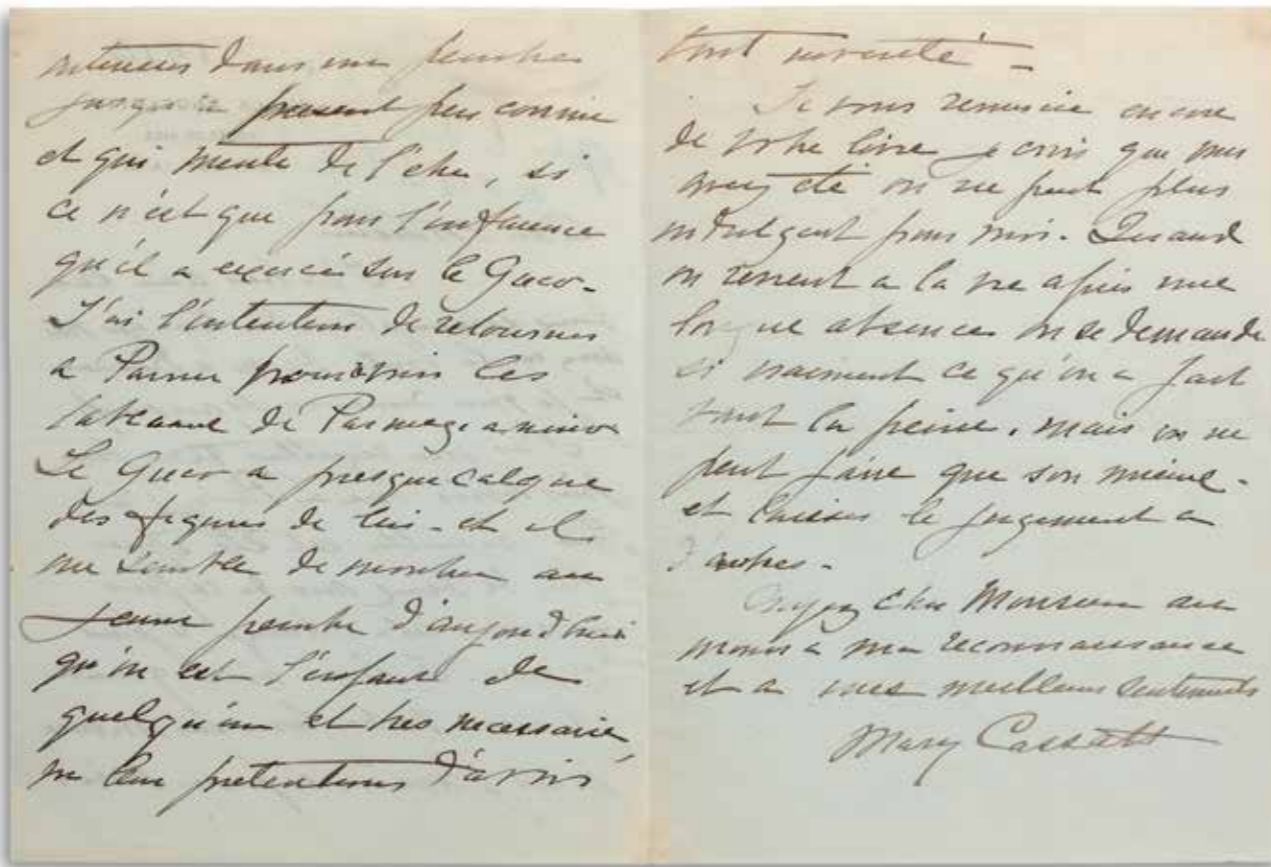 interesser dans un peintre
jusqu'a present peu connu
et qui merite de l'etre, si
ce n'est que pour l'influence
qu'il a exercée sur le Greco.
J'ai l'intention de retourner
a Parme pour voir les
tableaux de Parmegianino
Le Greco a presque calque
des figures de lui - et il
me semble de montrer au
jeune peintre d'aujourd'hui
qu'on est l'enfant de
quelqu'un et tres necessaire,
pretentions d'avoir
tout inventé -
Je vous remercie encore
de votre livre je crois que vous
avez été on ne peut plus
indulgent pour moi. Quand
on revient a la vie apres une
longue absence on se demande
si vraiment ce qu'on a fait
vaut la peine. mais on ne
peut faire que son mieux -
et laisser le jugement a
d'autres -
Croyez Cher Monsieur au
moins a ma reconnaissance
et a mes meilleurs sentiments
Mary Cassatt